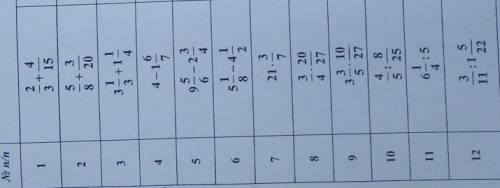 № п/п
1 2/3 + 4/15
2 5/8 + 3/20
3 3 1/3 + 1 1/4
4 4 − 1 6/7
5 9 5/6 − 2 3/4
6 5 1/8 − 4 1/2
7 21 · 3/7
8 3/4 · 20/27
9 3 3/5 · 10/27
10 4/5 : 8/25
11 6 1/4 : 5
12 3/11 : 1 5/22